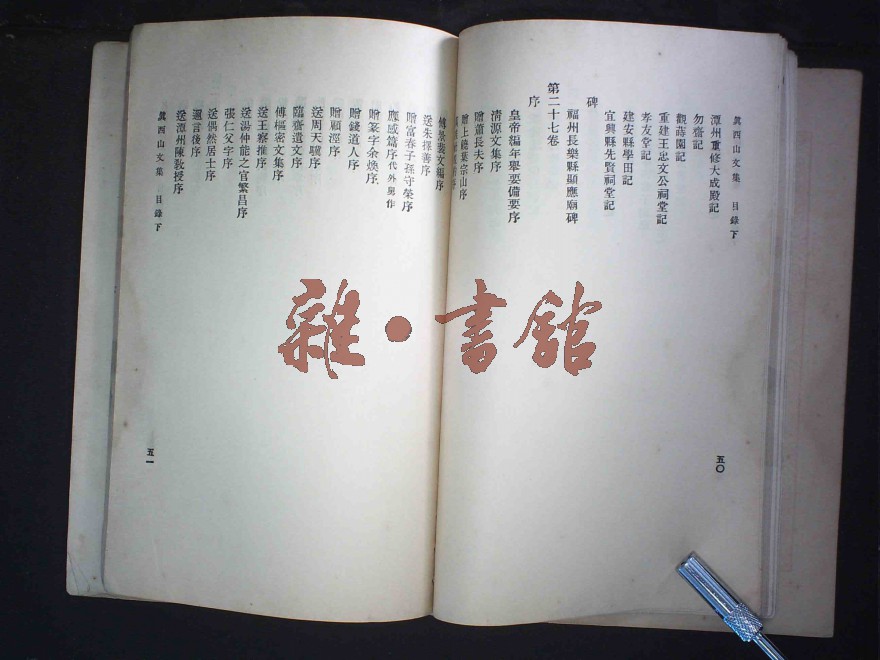 眞西山文集　目錄下
潭州重修大成殿記
勿齋記
觀蒔園記
重建王忠文公祠堂記
孝友堂記
建安縣學田記
宜興縣先賢祠堂記
碑
福州長樂縣顯應廟碑
第二十七卷
序
皇帝編年舉要備要序
清源文集序
贈蕭長夫序
贈上饒葉宗山序
五〇
序
傅景裴文編序
送朱擇善序
贈富春子孫守榮序
應感篇序代外舅作
贈篆字余煥序
贈錢道人序
贈顧涇序
送周天驥序
臨齋遺文序
傅樞密文集序
送王察推序
送湯仲能之官繁昌序
張仁父字序
送偶然居士序
邇言後序
送潭州陳敎授序
眞西山文集　目錄下
五一
雜·書館